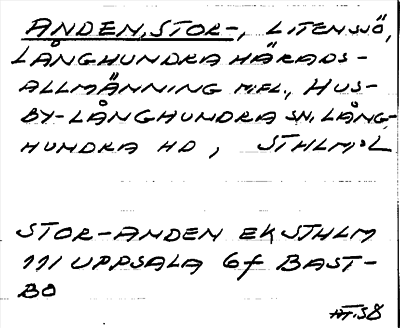 ANDEN, STOR-, LITEN SJÖ,
LÅNGHUNDRA HÄRADS-
ALLMÄNNING M.FL., HUS-
BY-LÅNGHUNDRA SN, LÅNG-
HUNDRA HD, STHLM:L
STOR-ANDEN EK STHLM
111 UPPSALA 6f BAST-
BO
HT.58